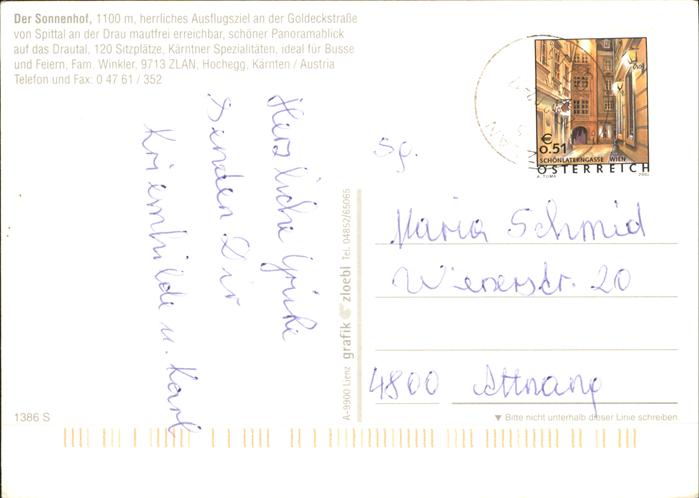 Der Sonnenhof, 1100 m, herrliches Ausflugsziel an der Goldeckstraße
von Spittal an der Drau mautfrei erreichbar, schöner Panoramablick
auf das Drautal, 120 Sitzplätze, Kärntner Spezialitäten, ideal für Busse
und Feiern, Fam. Winkler, 9713 ZLAN, Hochegg, Kärnten / Austria
Telefon und Fax: 0 47 61 / 352
Herzliche Grüße
senden Dir
Kriemhilde u. Karl
1386 S
A-9900 Lienz grafik zloebl Tel. 04852/65065
€
0.51
SCHÖNLATERNGASSE WIEN
ÖSTERREICH
A. TUMA 2002
Maria Schmid
Wienerstr. 20
4800 Attnang
▼ Bitte nicht unterhalb dieser Linie schreiben